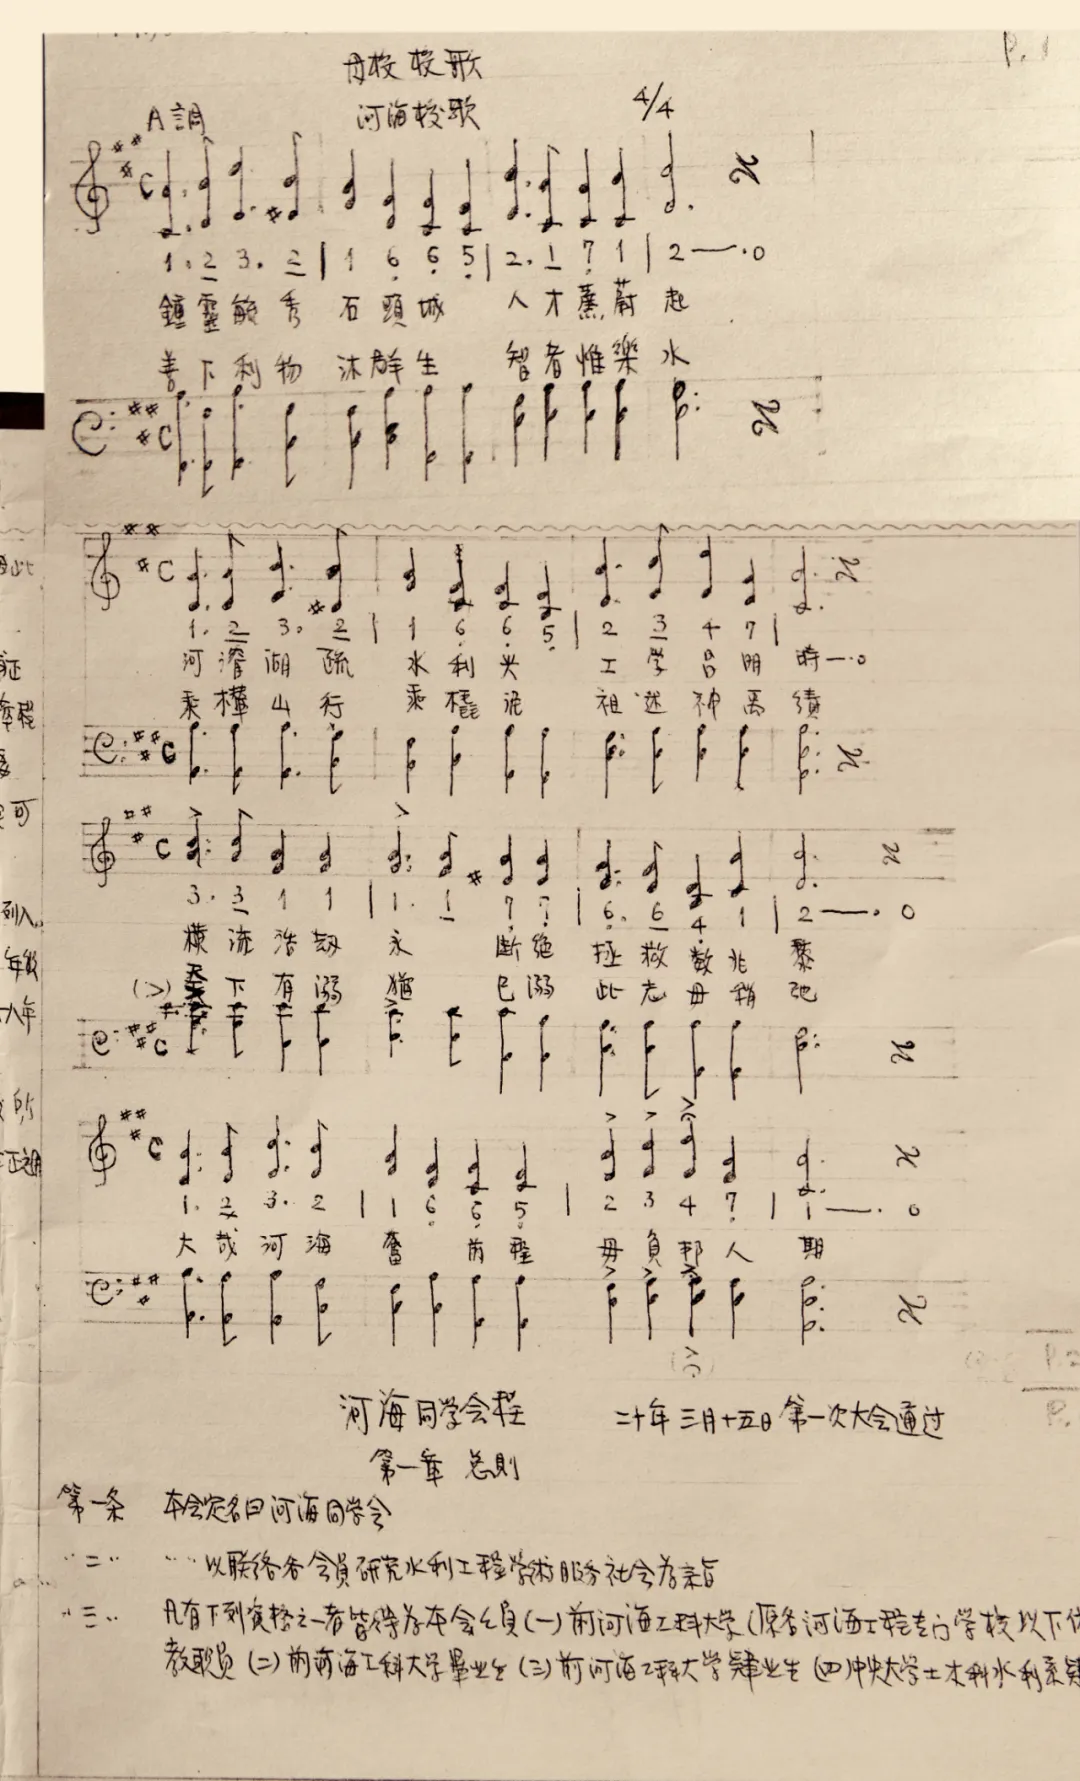 P. 1
母校校歌
A調 河海校歌 4/4
1. 2 3. 2 | 1 6 6 5 | 2. 1 7 1 | 2 —. 0
鍾靈毓秀 石頭城 人才薫蔚起
善下利物 沐群生 智者惟樂水
1. 2 3. 2 | 1 6 6 5 | 2 3 4 7 |
河濬湖疏 水利兴 工学吕明時 —. 0
乘樺山行 乘橇泥 祖述神禹績
3. 3 1 1 | 1. 1 7 7 | 6. 6 4 1 | 2 —. 0
横流浩劫 永断绝 拯救数兆黎
下有溺 猶已溺 此志毋稍弛
1. 2 3. 2 | 1 6 6 5 | 2 3 4 7 | 1 —. 0
大哉河海 奮前程 毋負邦人期
河海同学会程 二十年三月十五日第一次大会通过
第一章 总則
第一条 本会定名曰河海同学会
〃二〃 〃〃以联络各会員研究水利工程学術服务社会为宗旨
〃三〃 凡有下列資格之一者皆得为本会会員(一)前河海工科大学(原名河海工程专门学校以下
教职员(二)前河海工科大学畢业生(三)前河海工科大学肄业生(四)中央大学土木科水利系肄